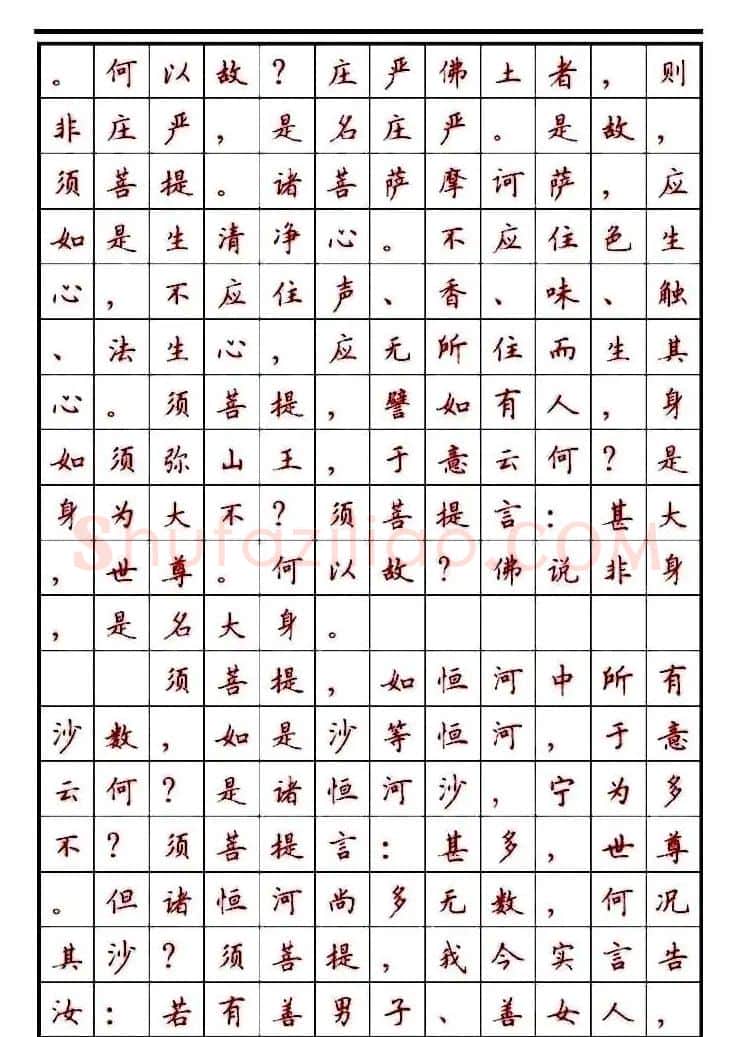 。何以故?庄严佛土者,则
非庄严,是名庄严。是故,
须菩提。诸菩萨摩诃萨,应
如是生清净心。不应住色生
心,不应住声、香、味、触
、法生心,应无所住而生其
心。须菩提,譬如有人,身
如须弥山王,于意云何?是
身为大不?须菩提言:甚大
Shufaziliao.COM
,世尊。何以故?佛说非身
,是名大身。
须菩提,如恒河中所有
沙数,如是沙等恒河,于意
云何?是诸恒河沙,宁为多
不?须菩提言:甚多,世尊
。但诸恒河尚多无数,何况
其沙?须菩提,我今实言告
汝:若有善男子、善女人,